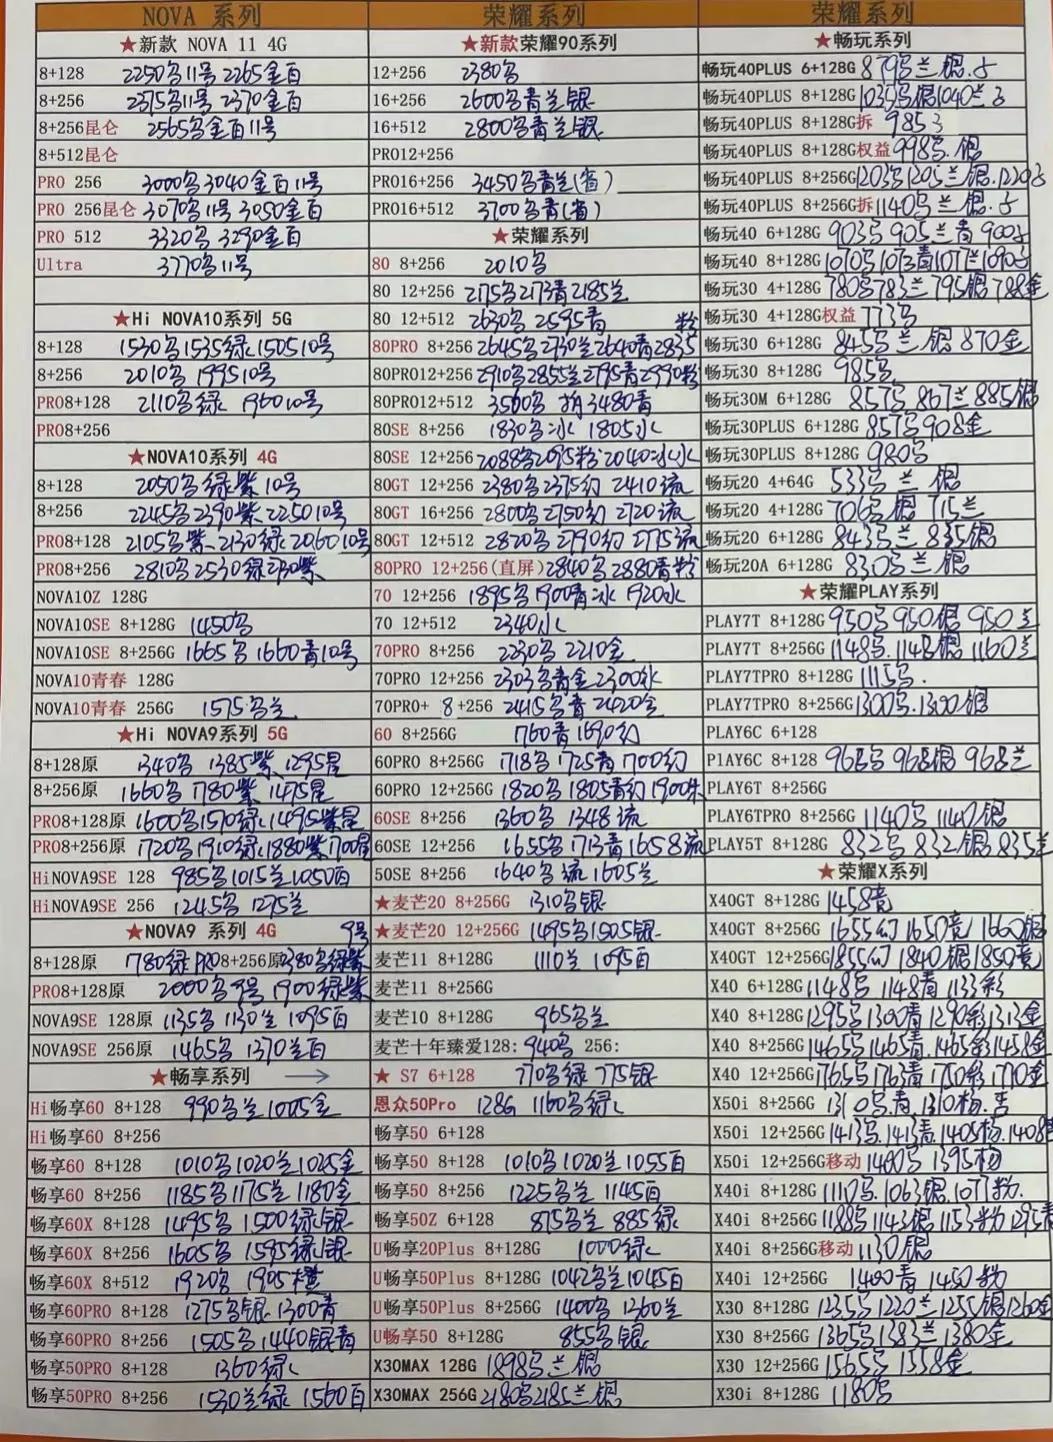 NOVA 系列
★新款 NOVA 11 4G
8+128 2250 11号 2265金百
8+256 2375 11号 2370金百
8+256昆仑 2565 金百11号
8+512昆仑
PRO 256 3000 3040金百11号
PRO 256昆仑 3070 11号 3050金百
PRO 512 3320 3290金百
Ultra 3770 11号
★Hi NOVA10系列 5G
8+128 1530 1535绿 1505 10号
8+256 2010 1995 10号
PRO8+128 2110 绿 1960 10号
PRO8+256
★NOVA10系列 4G
8+128 2050 绿紫 10号
8+256 2245 2390紫 2250 10号
PRO8+128 2105 紫 2130绿 2060 10号
PRO8+256 2810 2530绿 紫
NOVA10Z 128G
NOVA10SE 8+128G 1450
NOVA10SE 8+256G 1665 1660青10号
NOVA10青春 128G
NOVA10青春 256G 1575 兰
★Hi NOVA9系列 5G
8+128原 1340 1385紫 1295星
8+256原 1660 1780紫 1475星
PRO8+128原 1600 1570绿 1495紫星
PRO8+256原 1720 1910绿 1880紫 1700星
HiNOVA9SE 128 985 1015兰 1050百
HiNOVA9SE 256 1245 1275兰
★NOVA9 系列 4G 9号
8+128原 1780绿 PRO8+256原 2380 绿紫
PRO8+128原 2000 9号 1900绿紫
NOVA9SE 128原 1135 1130兰 1095百
NOVA9SE 256原 1465 1370兰百
★畅享系列 →
Hi畅享60 8+128 990 兰 1005金
Hi畅享60 8+256
畅享60 8+128 1010 1020兰 1025金
畅享60 8+256 1185 1175兰 1180金
畅享60X 8+128 1495 1500绿银
畅享60X 8+256 1605 1595绿银
畅享60X 8+512 1920 1905橙
畅享60PRO 8+128 1275 银 1300青
畅享60PRO 8+256 1505 1440银青
畅享50PRO 8+128 1360绿
畅享50PRO 8+256 1530兰绿 1560百
荣耀系列
★新款荣耀90系列
12+256 2380
16+256 2600 青兰银
16+512 2800 青兰银
PRO12+256
PRO16+256 3450 青兰(省)
PRO16+512 3700 青(省)
★荣耀系列
80 8+256 2010
80 12+256 2175 2173青 2185兰
80 12+512 2630 2595青 粉
80PRO 8+256 2645 2730兰 2640青 2835
80PRO12+256 2910 2855兰 2795青 2990粉
80PRO12+512 3560 3480青
80SE 8+256 1830 冰 1805水
80SE 12+256 2088 2095粉 2040冰水
80GT 12+256 2380 2375幻 2410流
80GT 16+256 2800 2750幻 2720流
80GT 12+512 2820 2790幻 2775流
80PRO 12+256(直屏) 2840 2880青粉
70 12+256 1895 1900青冰 1920水
70 12+512 2340水
70PRO 8+256 2230 2210金
70PRO 12+256 2303 青金 2300水
70PRO+ 8+256 2415 青 2420金
60 8+256G 1760青 1690幻
60PRO 8+256G 1718 1725青 1700幻
60PRO 12+256G 1820 1805青幻 1900
60SE 8+256 1360 1348流
60SE 12+256 1655 1713青 1658流
50SE 8+256 1640 流 1605兰
★麦芒20 8+256G 1310 银
★麦芒20 12+256G 1495 1505银
麦芒11 8+128G 1110兰 1095百
麦芒11 8+256G
麦芒10 8+128G 965 兰
麦芒十年臻爱128: 940 256:
★ S7 6+128 770 绿 775银
恩众50Pro 128G 1160 绿
畅享50 6+128
畅享50 8+128 1010 1020兰 1055百
畅享50 8+256 1225 兰 1145百
畅享50Z 6+128 875 兰 885绿
U畅享20Plus 8+128G 1000绿
U畅享50Plus 8+128G 1042 兰 1045百
U畅享50Plus 8+256G 1400 1260兰
U畅享50 8+128G 855 银
X30MAX 128G 1898 兰银
X30MAX 256G 2180 2185兰银
荣耀系列
★畅玩系列
畅玩40PLUS 6+128G 879 兰银
畅玩40PLUS 8+128G 1035 银 1040兰
畅玩40PLUS 8+128G拆 985
畅玩40PLUS 8+128G权益 998 银
畅玩40PLUS 8+256G 1203 1205兰银
畅玩40PLUS 8+256G拆 1140 兰银
畅玩40 6+128G 903 905兰青 900
畅玩40 8+128G 1070 1073青 1077兰 1090
畅玩30 4+128G 780 783兰 795银 788金
畅玩30 4+128G权益 773
畅玩30 6+128G 845 兰银 870金
畅玩30 8+128G 985
畅玩30M 6+128G 857 867兰 885银
畅玩30PLUS 6+128G 857 908金
畅玩30PLUS 8+128G 980
畅玩20 4+64G 533 兰银
畅玩20 4+128G 706 银 715兰
畅玩20 6+128G 843 兰 835银
畅玩20A 6+128G 830 兰银
★荣耀PLAY系列
PLAY7T 8+128G 950 950银 950兰
PLAY7T 8+256G 1148 1148银 1160兰
PLAY7TPRO 8+128G 1115
PLAY7TPRO 8+256G 1300 1300银
PLAY6C 6+128
PlAY6C 8+128 968 968银 968兰
PLAY6T 8+256G
PLAY6TPRO 8+256G 1140 1140银
PLAY5T 8+128G 832 832银 835兰
★荣耀X系列
X40GT 8+128G 1458竞
X40GT 8+256G 1655幻 1650竞 1660银
X40GT 12+256G 1855幻 1840银 1850竞
X40 6+128G 1148 1148青 1133彩
X40 8+128G 1295 1300青 1290彩 1313金
X40 8+256G 1465 1465青 1465彩 1458金
X40 12+256G 1765 1763青 1750彩 1710金
X50i 8+256G 1310 青 1310杨
X50i 12+256G 1413 1413青 1405杨 1408
X50i 12+256G移动 1400 1395杨
X40i 8+128G 1110 1063银 1077
X40i 8+256G 1188 1143银 1153 1295青
X40i 8+256G移动 1130银
X40i 12+256G 1400青 1450
X30 8+128G 1235 1220兰 1255银 1260金
X30 8+256G 1365 1383兰 1380金
X30 12+256G 1565 1558金
X30i 8+128G 1180